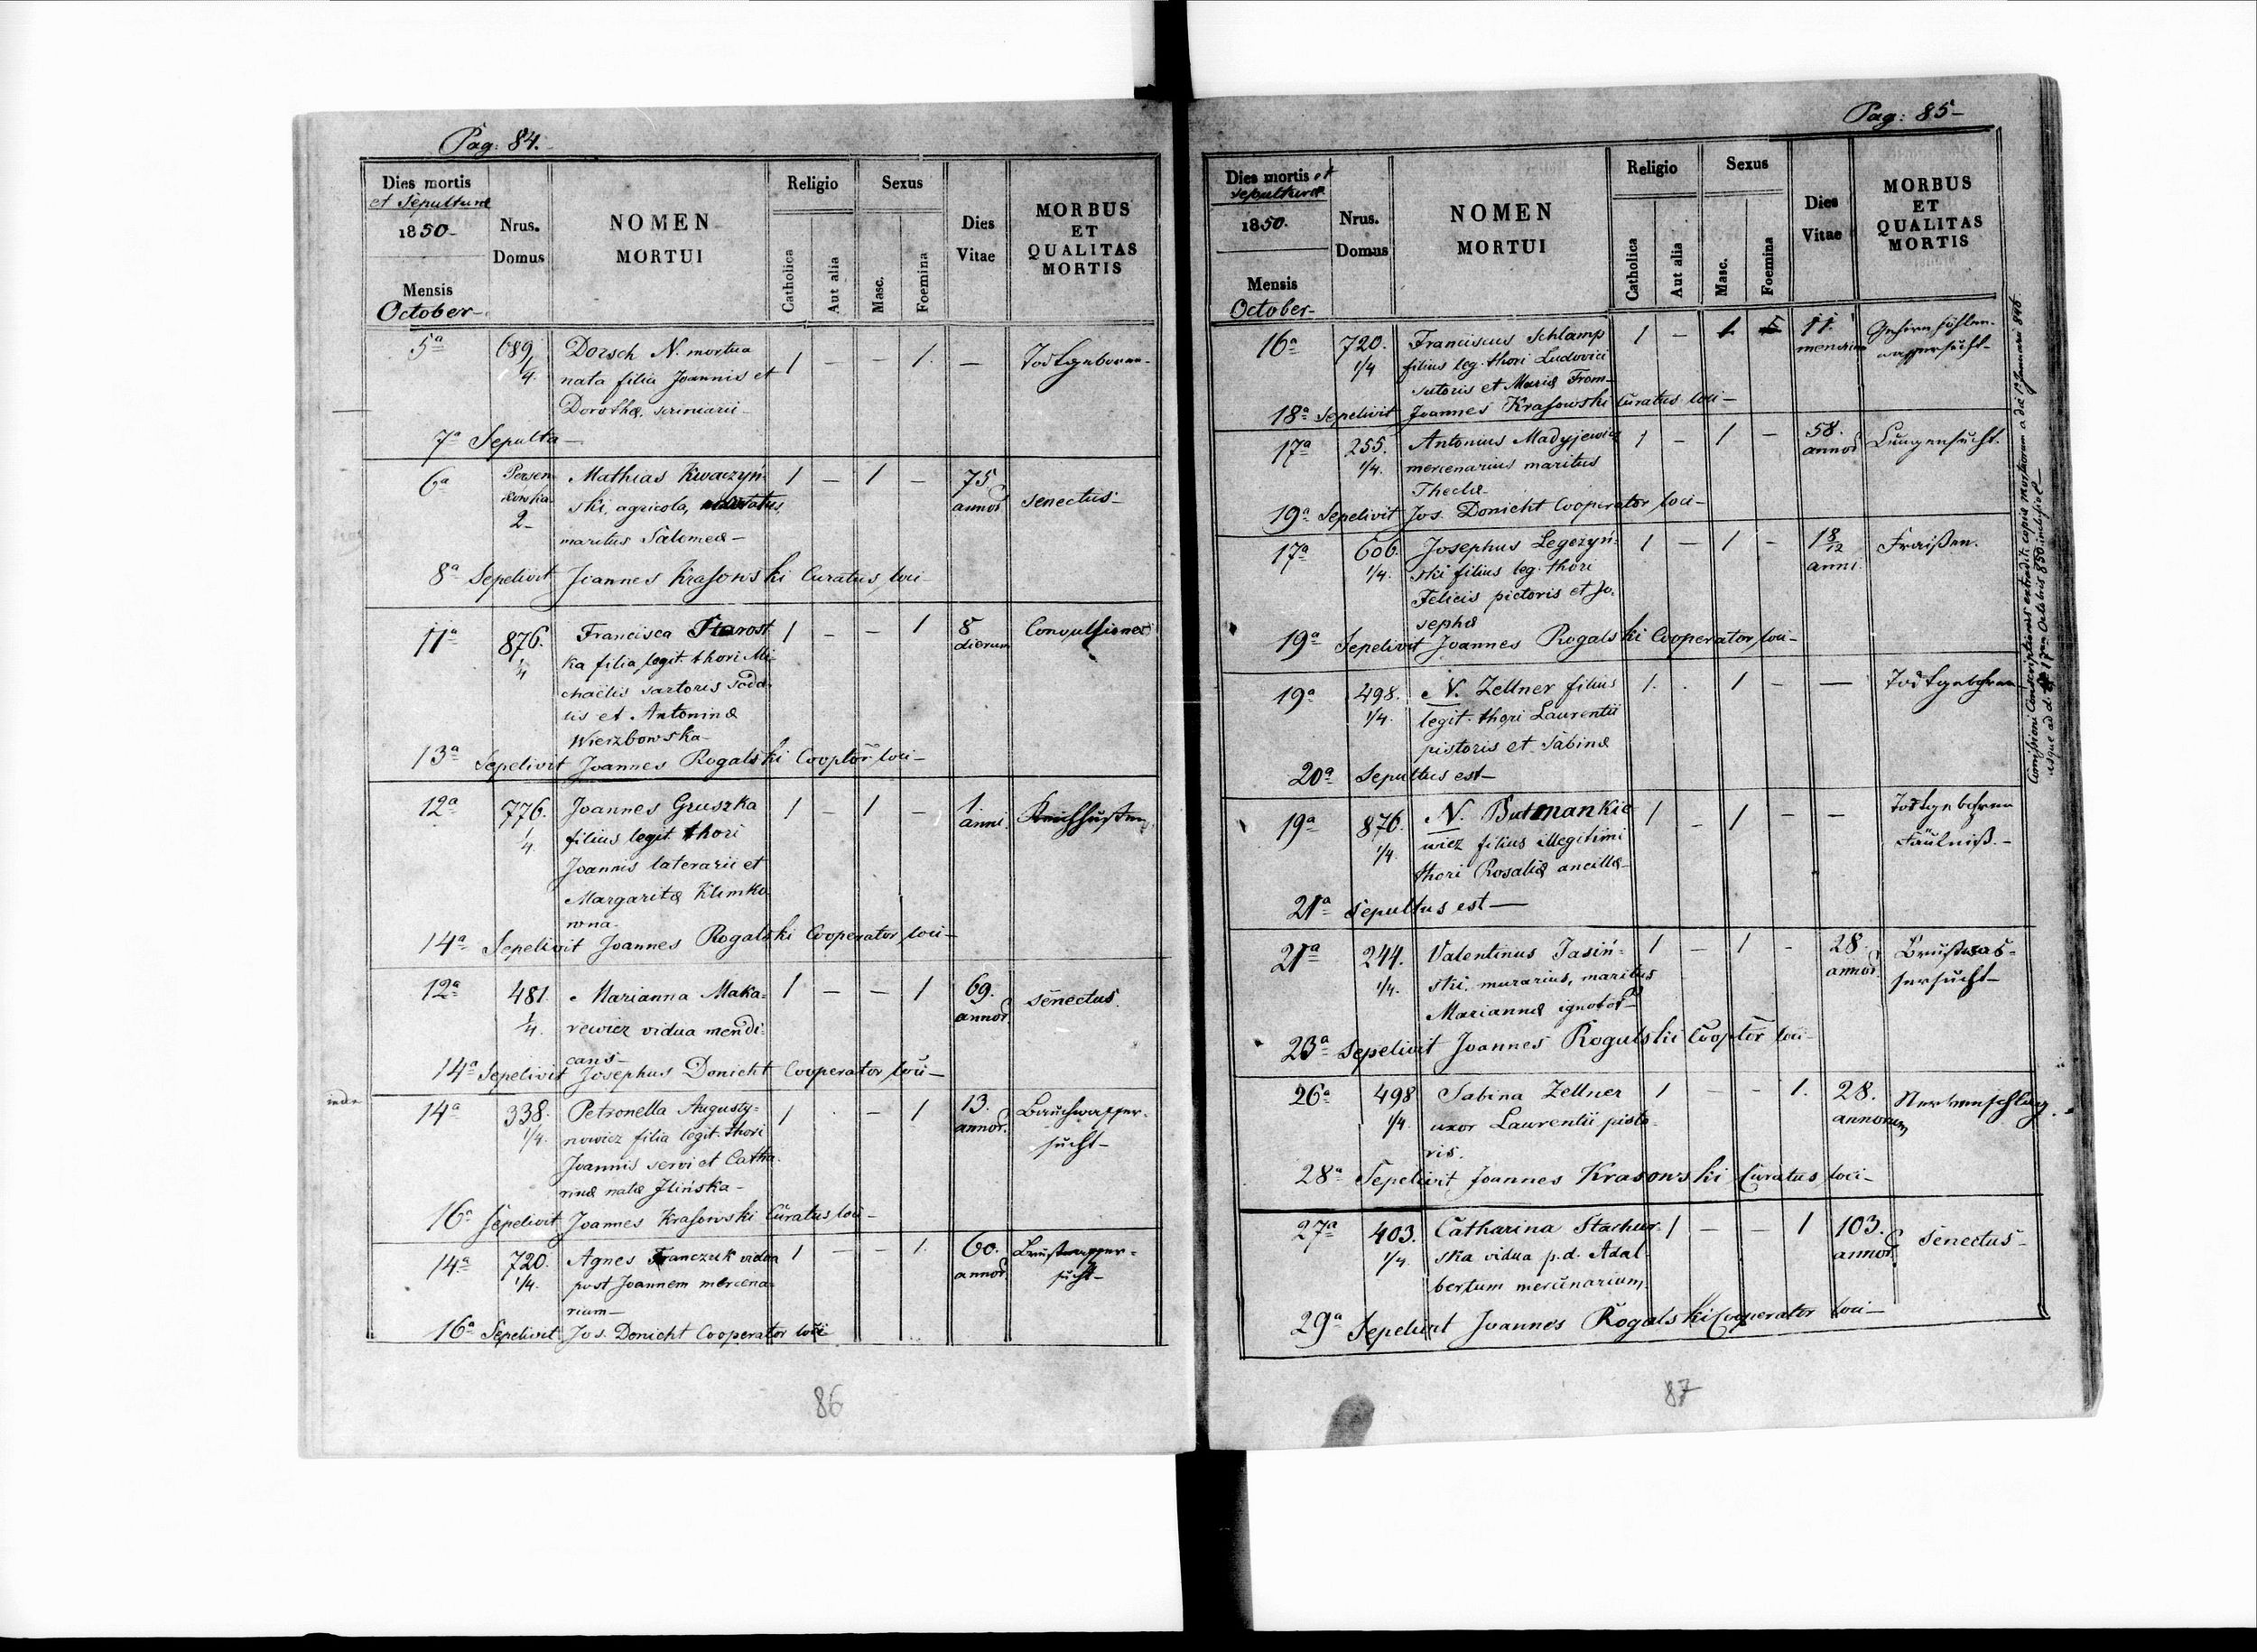 Pag: 84.
Dies mortis
et Sepulturæ
1850-
Mensis
October-
Nrus.
Domus
NOMEN
MORTUI
Religio
Catholica
Aut alia
Sexus
Masc.
Foemina
Dies
Vitae
MORBUS
ET
QUALITAS
MORTIS
5ª 689 Dorsch N. mortua 1 — — 1. — Todtgeboren-
1/4. nata filia Joannis et
Dorothæ, scriniarii-
7ª Sepulta-
6ª Mathias Kwaczyń- 1 — 1 — 75 senectus-
ski, agricola, annor
2- maritus Salomeæ-
8ª Sepelivit Joannes Krasowski Curatus loci-
11ª 876. Francisca Starost 1 — — 1 8 Convulsiones
1/4 ka filia legit. thori Mi- dierum
chaëlis sartoris soda-
lis et Antoninæ
Wierzbowska-
13ª Sepelivit Joannes Rogalski Cooptor loci-
12ª 776. Joannes Gruszka 1 — 1 — 1. Keichhusten
1/4 filius legit. thori anni.
Joannis laterarii et
Margaritæ Klimko-
wna.
14ª Sepelivit Joannes Rogalski Cooperator loci-
12ª 481. Marianna Maka- 1 — — 1 69. senectus.
1/4. rewicz vidua mendi- annor.
cans-
14ª Sepelivit Josephus Donicht Cooperator loci-
14ª 338. Petronella Augusty- 1 . — 1 13. Bauchwasser-
1/4. nowicz filia legit. thori annor. sucht-
Joannis servi et Catha-
rinæ natæ Ilińska-
16ª Sepelivit Joannes Krasowski Curatus loci-
14ª 720. Agnes Franczuk vidua 1 — — 1. 60. Brustwasser-
1/4. post Joannem mercena- annor. sucht-
rium-
16ª Sepelivit Jos. Donicht Cooperator loci
86
Pag: 85-
Dies mortis et
sepulturæ
1850.
Mensis
October-
Nrus.
Domus
NOMEN
MORTUI
Religio
Catholica
Aut alia
Sexus
Masc.
Foemina
Dies
Vitae
MORBUS
ET
QUALITAS
MORTIS
16ª 720. Franciscus Schlamp 1 — 1 11 Gehirnhöhlen-
1/4 filius leg. thori Ludovici mensium wassersucht-
sutoris et Mariæ From-
18ª Sepelivit Joannes Krasowski Curatus loci-
17ª 255. Antonius Madyjewicz 1 — 1 — 58. Lungensucht.
1/4. mercenarius maritus annor
Theclæ-
19ª Sepelivit Jos. Donicht Cooperator loci-
17ª 606. Josephus Legezyń- 1 — 1 — 18/12 Fraißen.
1/4. ski filius leg. thori anni.
Felicis pictoris et Jo-
sephæ
19ª Sepelivit Joannes Rogalski Cooperator loci-
19ª 498. N. Zellner filius 1. . 1 — — Todtgebohren
1/4. legit. thori Laurentii
pistoris et Sabinæ
20ª Sepultus est-
19ª 876. N. Butmankie 1 — 1 — — Todtgebohren
1/4. wicz filius illegitimi Fäulniß.-
thori Rosaliæ ancillæ-
21ª sepultus est—
21ª 244. Valentinus Jasiń- 1 — 1 - 28. Brustwas-
1/4. ski, murarius, maritus annor. sersucht-
Mariannæ ignotor-
23ª Sepelivit Joannes Rogalski Cooptor loci-
26ª 498 Sabina Zellner 1 — — 1. 28. Nervenschlag.
1/4. uxor Laurentii pisto- annorum
ris.
28ª Sepelivit Joannes Krasowski Curatus loci-
27ª 403. Catharina Stachur- 1 — — 1 103. Senectus-
1/4. ska vidua p.d. Adal- annor.
bertum mercenarium.
29ª Sepelivit Joannes Rogalski Cooperator loci-
Comissioni Conscriptionis extradita copia mortuorum a die 1ª Januarii 846.
usque ad d. 17 Octobris 850 inclusive-
87